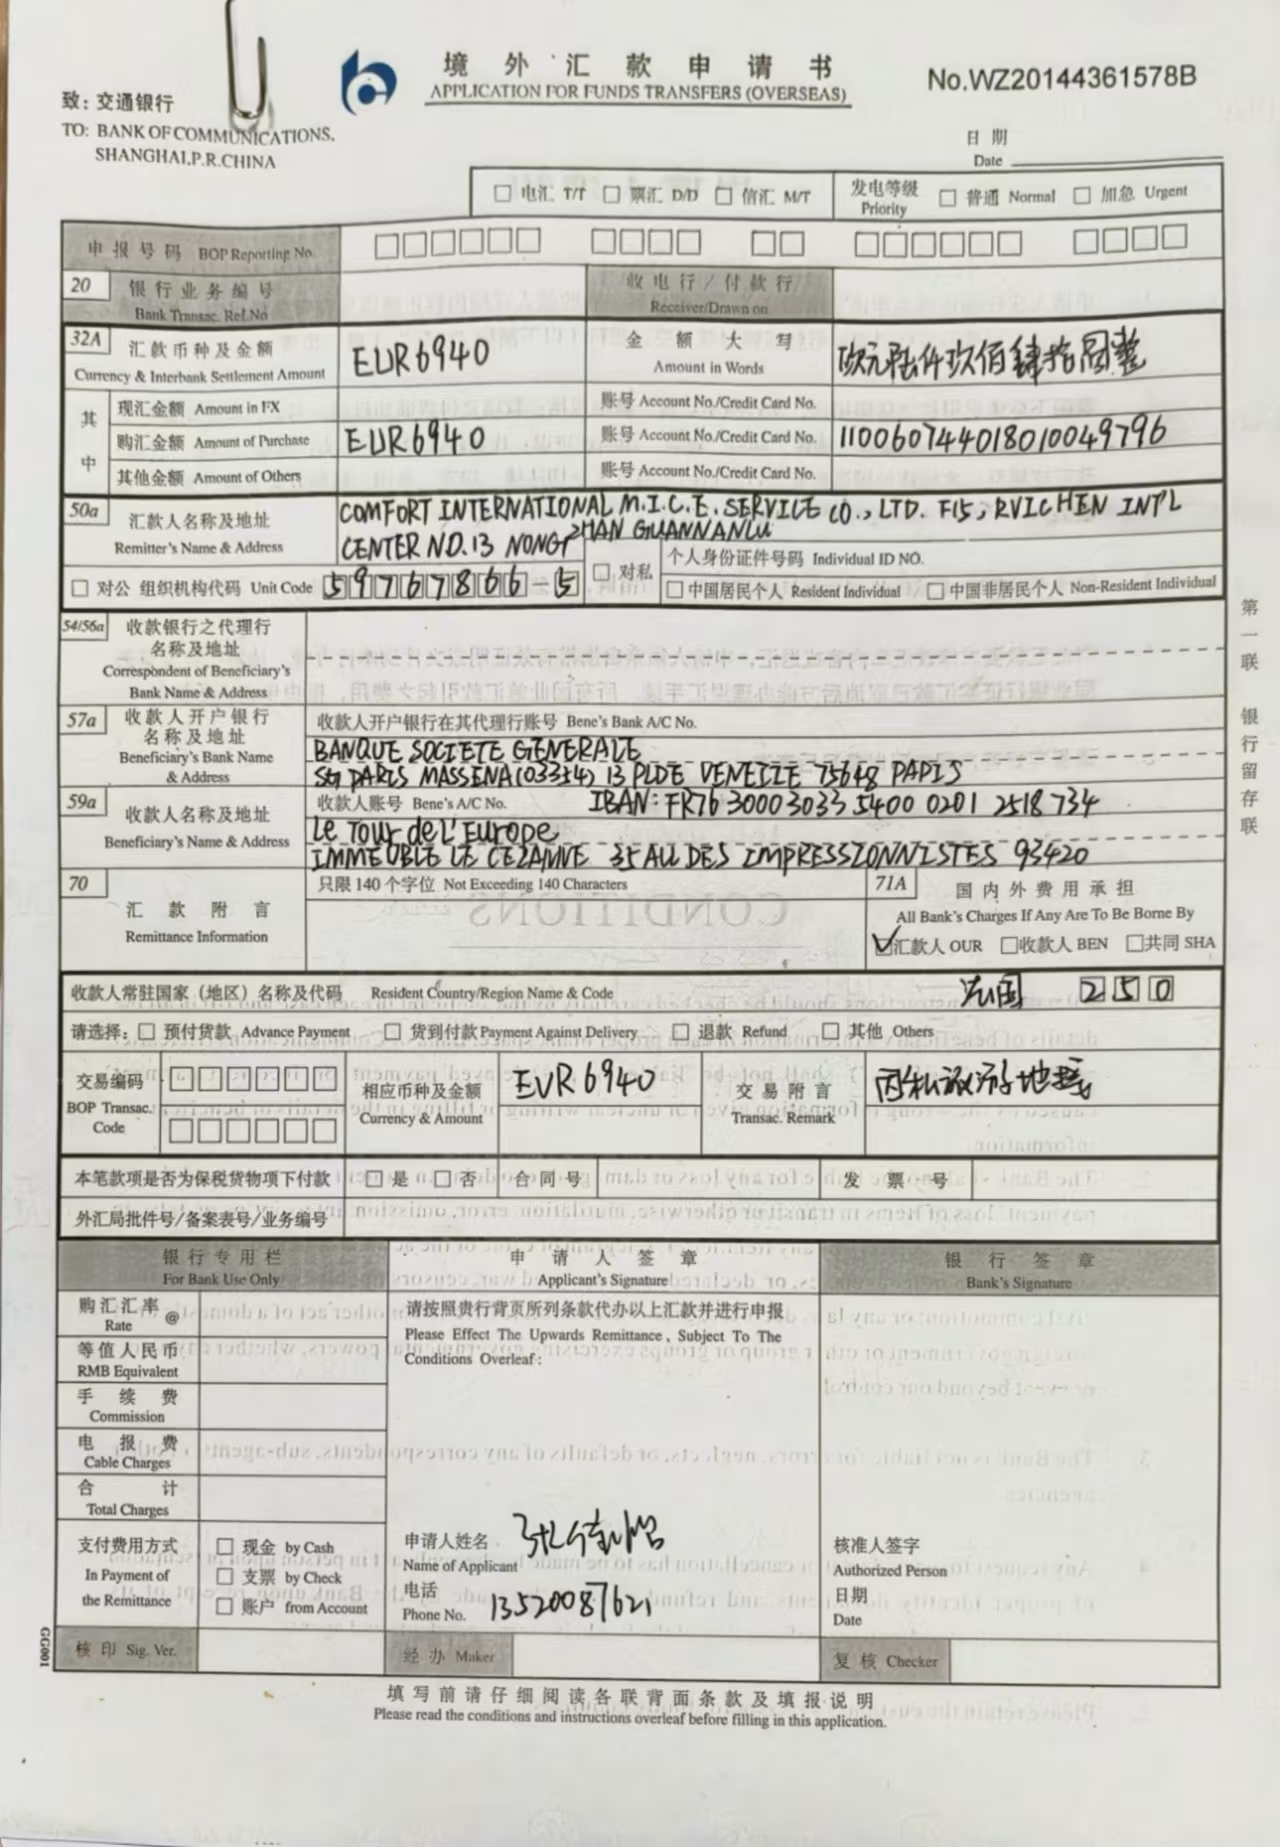 境外汇款申请书
APPLICATION FOR FUNDS TRANSFERS (OVERSEAS)
No.WZ20144361578B
致：交通银行
TO: BANK OF COMMUNICATIONS,
SHANGHAI,P.R.CHINA
日期
Date
电汇 T/T 票汇 D/D 信汇 M/T
发电等级 Priority 普通 Normal 加急 Urgent
申报号码 BOP Reporting No.
20 银行业务编号 Bank Transac. Ref.No
收电行/付款行 Receiver/Drawn on
32A 汇款币种及金额 Currency & Interbank Settlement Amount
EUR6940
金额大写 Amount in Words
欧元陆仟玖佰肆拾圆整
其中
现汇金额 Amount in FX
账号 Account No./Credit Card No.
购汇金额 Amount of Purchase
EUR6940
账号 Account No./Credit Card No.
110060744018010049796
其他金额 Amount of Others
账号 Account No./Credit Card No.
50a 汇款人名称及地址 Remitter's Name & Address
COMFORT INTERNATIONAL M.I.C.E. SERVICE CO., LTD. F15, RVICHEN INT'L
CENTER NO.13 NONGZHAN GUANNANLU
对公 组织机构代码 Unit Code 59767866-5
对私
个人身份证件号码 Individual ID NO.
中国居民个人 Resident Individual 中国非居民个人 Non-Resident Individual
54/56a 收款银行之代理行
名称及地址
Correspondent of Beneficiary's
Bank Name & Address
57a 收款人开户银行
名称及地址
Beneficiary's Bank Name
& Address
收款人开户银行在其代理行账号 Bene's Bank A/C No.
BANQUE SOCIETE GENERALE
SG PARIS MASSENA(03354) 13 PLDE VENECIE 75648 PAPIS
59a 收款人名称及地址
Beneficiary's Name & Address
收款人账号 Bene's A/C No. IBAN: FR76 3000 3033 5400 0201 2518 734
Le Tour de L'Europe
IMMEUBLE LE CEZANNE 35 ALL DES IMPRESSIONNISTES 93420
70 汇款附言
Remittance Information
只限140个字位 Not Exceeding 140 Characters
71A 国内外费用承担
All Bank's Charges If Any Are To Be Borne By
汇款人 OUR 收款人 BEN 共同 SHA
收款人常驻国家（地区）名称及代码 Resident Country/Region Name & Code 法国 250
请选择： 预付货款 Advance Payment 货到付款 Payment Against Delivery 退款 Refund 其他 Others
交易编码
BOP Transac.
Code
相应币种及金额
Currency & Amount
EUR6940
交易附言
Transac. Remark
因私旅游地接
本笔款项是否为保税货物项下付款 是 否 合同号 发票号
外汇局批件号/备案表号/业务编号
银行专用栏
For Bank Use Only
申请人签章
Applicant's Signature
银行签章
Bank's Signature
购汇汇率 @
Rate
等值人民币
RMB Equivalent
手续费
Commission
电报费
Cable Charges
合计
Total Charges
支付费用方式
In Payment of
the Remittance
现金 by Cash
支票 by Check
账户 from Account
请按照贵行背页所列条款代办以上汇款并进行申报
Please Effect The Upwards Remittance, Subject To The
Conditions Overleaf:
申请人姓名
Name of Applicant
电话
Phone No. 13520087621
核准人签字
Authorized Person
日期
Date
核印 Sig. Ver.
经办 Maker
复核 Checker
填写前请仔细阅读各联背面条款及填报说明
Please read the conditions and instructions overleaf before filling in this application.
第一联 银行留存联
GG001